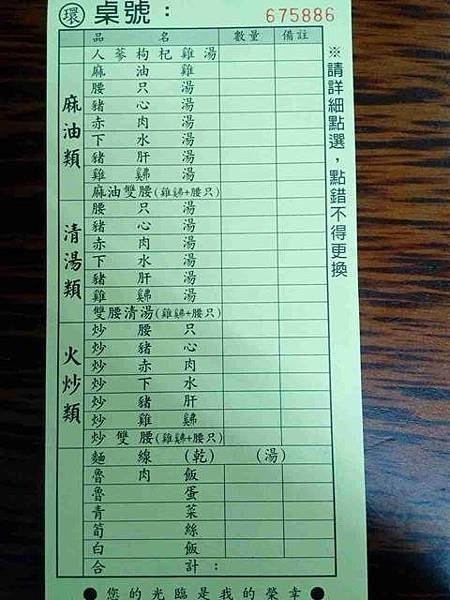 環 桌號： 675886
品名 數量 備註
人蔘枸杞雞湯
麻油類
麻油雞
腰只湯
豬心湯
赤肉湯
下水湯
豬肝湯
雞鵤湯
麻油雙腰(雞鵤+腰只)
清湯類
腰只湯
豬心湯
赤肉湯
下水湯
豬肝湯
雞鵤湯
雙腰清湯(雞鵤+腰只)
火炒類
炒腰只
炒豬心
炒赤肉
炒下水
炒豬肝
炒雞鵤
炒雙腰(雞鵤+腰只)
麵線(乾) (湯)
魯肉飯
魯蛋
青菜
筍絲
白飯
合計：
※請詳細點選，點錯不得更換
●您的光臨是我的榮幸●